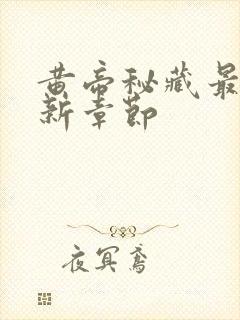 黄帝秘藏最
新章节
夜冥鸢